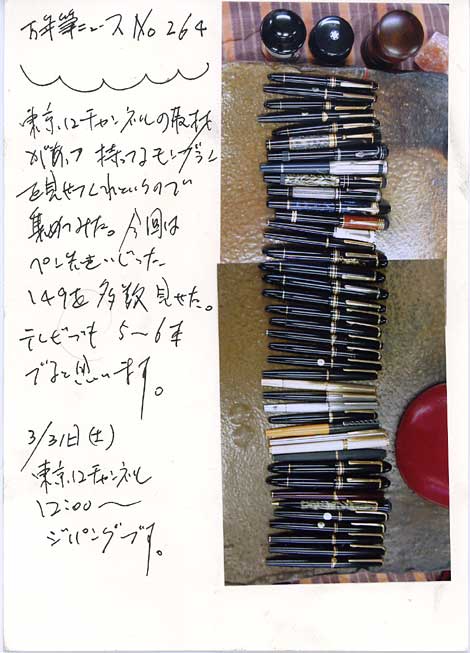 万年筆ニュース No 264
東京12チャンネルの取材
があって 持ってるモンブラン
を見せてくれというので
集めてみた。今回は
ペン先をいじった
149を 多数 見せた。
テレビでも 5〜6本
でると思います。
3/31日(土)
東京12チャンネル
12:00〜
ジパングです。